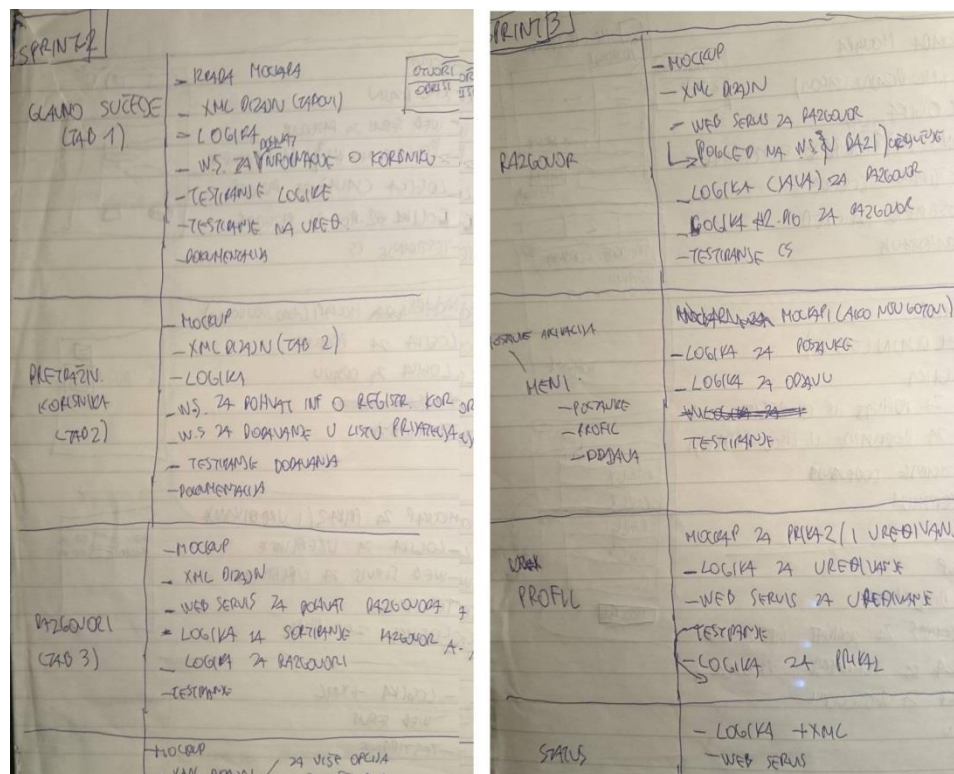 SPRINT 2
GLAVNO SUČELJE
(TAB 1)
- IZRADA MOCKAPA
- XML DIZAJN (TABOVI)
- LOGIKA
- W.S. ZA DOHVAT INFORMACIJE O KORISNIKU
- TESTIRANJE LOGIKE
- TESTIRANJE NA UREĐ.
- DOKUMENTACIJA
OTVORI
PRETRAŽIV.
KORISNIKA
(TAB 2)
- MOCKUP
- XML DIZAJN (TAB 2)
- LOGIKA
- W.S. ZA DOHVAT INF O REGISTR. KOR
- W.S ZA DODAVANJE U LISTU PRIJATELJA
- TESTIRANJE DODAVANJA
- DOKUMENTACIJA
RAZGOVORI
(TAB 3)
- MOCKUP
- XML DIZAJN
- WEB SERVIS ZA DOHVAT RAZGOVORA
- LOGIKA ZA SORTIRANJE RAZGOVOR
- LOGIKA ZA RAZGOVORI
- TESTIRANJE
- MOCKUP
- XML DIZAJN / ZA VIŠE OPCIJA
SPRINT 3
RAZGOVOR
- MOCKUP
- XML DIZAJN
- WEB SERVIS ZA RAZGOVOR
POGLED NA W.S U BAZI
- LOGIKA (JAVA) ZA RAZGOVOR
LOGIKA #2. DIO ZA RAZGOVOR
- TESTIRANJE CS
POSTAVKE APLIKACIJA
MENI
- POSTAVKE
- PROFIL
- ODJAVA
MOCKAPI (AKO NISU GOTOVI)
- LOGIKA ZA POSTAVKE
- LOGIKA ZA ODJAVU
TESTIRANJE
PROFIL
MOCKAP ZA PRIKAZ / I UREĐIVAN
- LOGIKA ZA UREĐIVANJE
- WEB SERVIS ZA UREĐIVANJE
TESTIRANJE
- LOGIKA ZA PRIKAZ
STATUS
- LOGIKA + XML
- WEB SERVIS